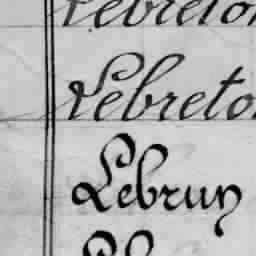 Lebreton
Lebreto
Lebrun